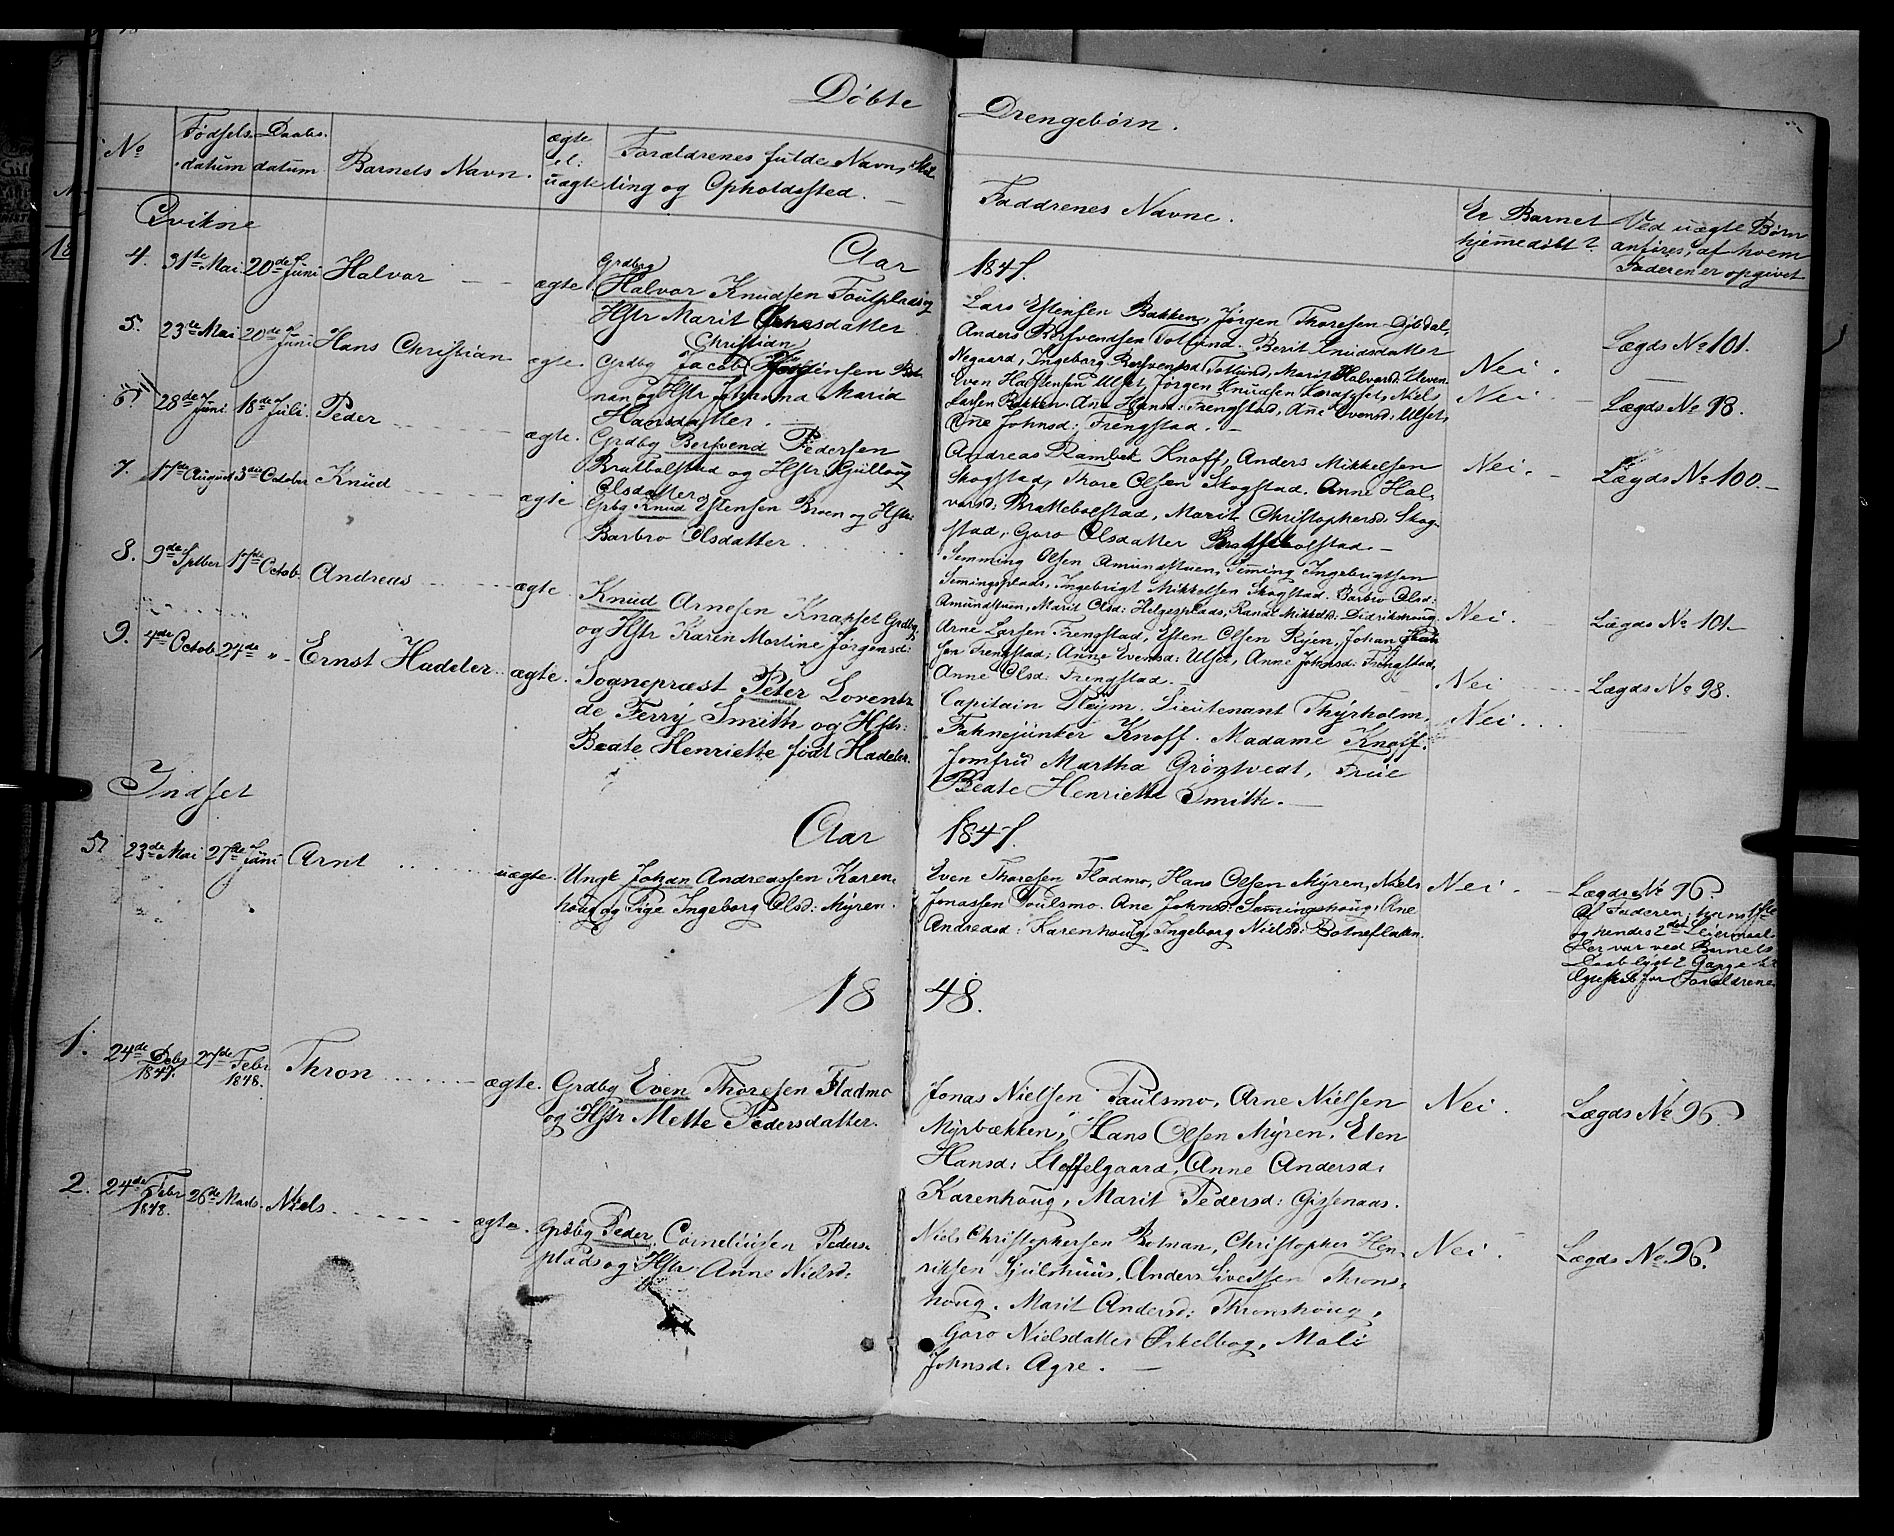 Døbte Drengebørn.
No
Fødsels datum
Daabs datum
Barnets Navn.
ægte el: uægte
Forældrenes fulde Navn, Stilling og Opholdssted.
Faddrenes Navne.
Er Barnet hjemmedøbt?
Ved uægte Børn anføres, af hvem Faderen er opgivet
Qvikne
Aar 1847.
4. 31te Mai 20de Juni Halvor ægte
Grdbrg
Halvor Knudsen
Hstr Marit
Lars Estensen Bakken, Jørgen Thoresen
Anders Bersvendsen Totlund. Berit Knudsdatter
Negaard, Ingeborg Bersvensd: Totlund, Marit Halvorsd:
Nei.
Lægds No 101.
5. 23de Mai 20de Juni Hans Christian ægte.
Christian
Grdbg Jacob
nan og Hstr Johanna Maria
Hansdatter.
Even Halstensen Ulset, Jørgen Knudsen Knapset, Niels
Larsen Bakken. Ane Hansd: Frengstad, Ane Evensd: Ulset,
Ane Johnsd: Frengstad.
Nei
Lægds No 98.
6. 28de Juni 18de Juli Peder ægte.
Grdbg Bersvend Pedersen
Bratbolstad og Hstr Gullaug
Olsdatter
Andreas Rambek Knoff, Anders Mikkelsen
Skogstad, Thore Olsen Skogstad. Anne Hal-
vorsd: Brattebolstad, Marit Christophersd: Skog-
stad, Goro Olsdatter
Nei.
Lægds No 100.
7. 17de August 3die October Knud ægte
Grbg Knud Estensen Broen og Hstr
Barbro Olsdatter
Semming Olsen Amundstuen, Seming Ingebrigtsen
Semingsplads, Ingebrigt Mikkelsen Skogstad. Barbro Olsd:
Amundstuen, Marit Olsd: Helgesplads, Randi Mikkelsd: Didrikshoug
Nei.
Lægds No 101.
8. 9de Septber 17de Octob. Andreas ægte.
Knud Arnesen Knapset Grdbg
og Hstr Karen Martine Jørgensd:
Arne Larsen Frengstad, Esten Olsen Ryen, Johan
sen Frengstad; Anne Evensd: Ulset, Anne Johnsd: Frengstad,
Anne Olsd: Frengstad.
Nei
Lægds No 98.
9. 4de Octob 24de " Ernst Hadeler ægte.
Sognepræst Peter Lorentz
de Ferry Smith og Hstr:
Beate Henriette født Hadeler.
Capitain Røym. Lieutenant Thyrholm,
Fahnejunker Knoff. Madame Knoff.
Jomfru Martha Grøntvedt, Frue
Beate Henriette Smith.
Nei.
Indset
Aar 1847.
5. 23de Mai 27de Juni Arnt uægte.
Ungk Johan Andreassen Karen-
houg og Pige Ingeborg Olsd: Myren.
Even Thoresen Fladmo, Hans Olsen Myren, Niels
Jonassen Poulsmo. Ane Johnsd: Semingshoug, Ane
Andreasd: Karenhoug, Ingeborg Nielsd: Botneflaten.
Nei.
Lægds No 96.
Af Faderen; hans 1ste
og hendes 2det Leiermaal
Der var ved Barnets
Daab lyst 2 Gange til
Egteskab for Forældrene
1848.
1. 24de Debr 1847. 27de Febr 1848. Thron ægte.
Grdbg Even Thoresen Fladmo
og Hstr Mette Pedersdatter.
Jonas Nielsen Paulsmo, Arne Nielsen
Myrbækken, Hans Olsen Myren, Elen
Hansd: Kleffelgaard, Anne Andersd:
Karenhoug, Marit Pedersd: Gissenaas.
Nei.
Lægds No 96.
2. 24de Febr 1848. 26de Marts. Niels ægte
Grdbg Peder Corneliusen Peders-
plads og Hstr Anne Nielsd:
Niels Christophersen Botnan, Christopher Hen-
riksen Hjulshuus, Anders Sivertsen Throns-
houg. Marit Andersd: Thronshoug,
Goro Nielsdatter Orkelbog, Mali
Johnsd: Agre.
Nei.
Lægds No 96.